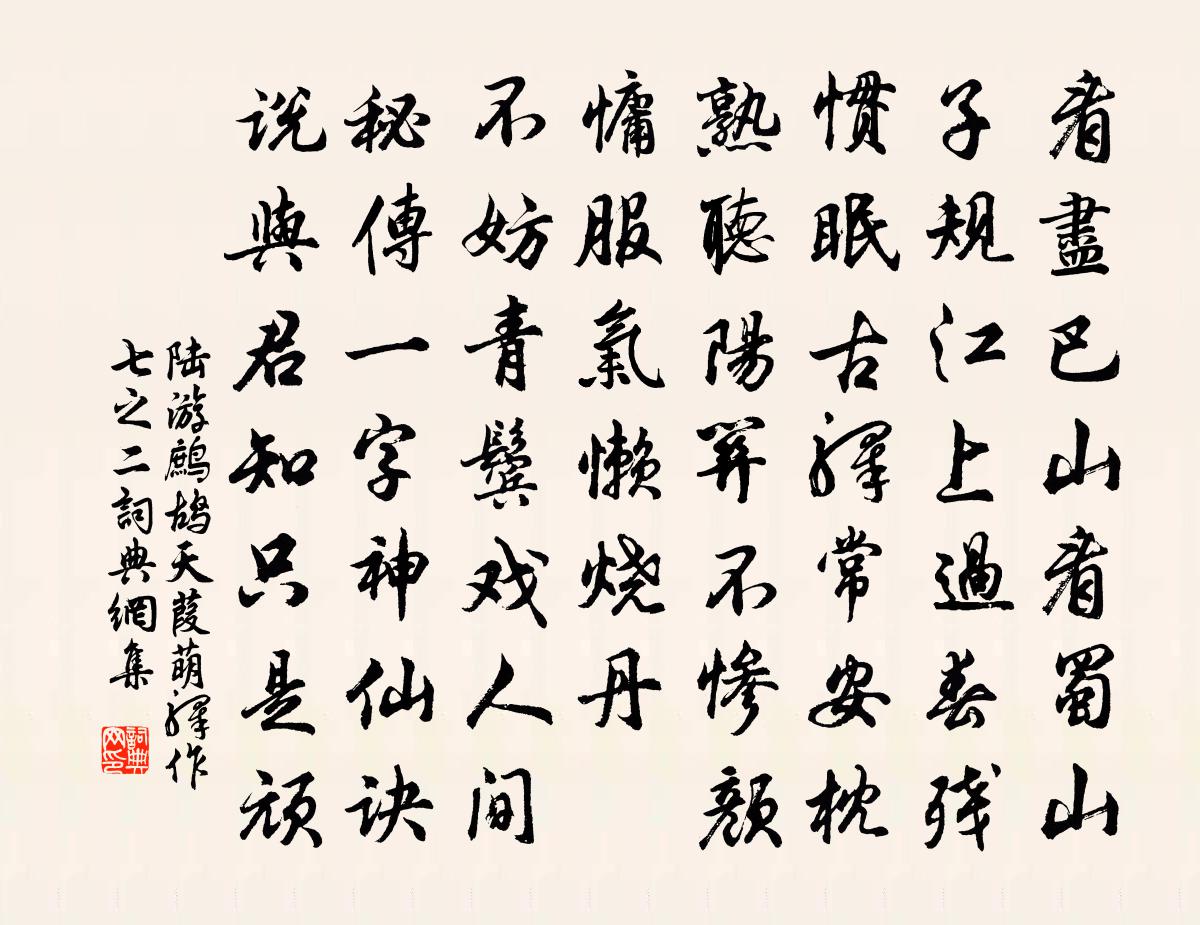 看盡巴山看蜀山
子規江上過春残
慣眠古驛常安枕
熟聽陽關不慘顏
慵服氣懶烧丹
不妨青鬢戏人间
秘傳一字神仙诀
说與君知只是頑
陆游鷓鴣天葭萌驛作
七之二詞典網集
詞典网印